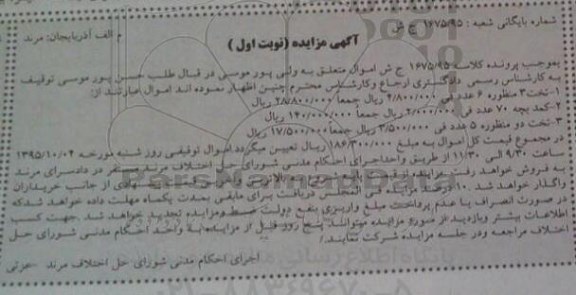 شماره بایگانی شعبه : ۱۶۷۵/۹۵ ج ش
م الف آذربایجان: مرند
آگهی مزایده (نوبت اول )
بموجب پرونده کلاسه ۱۶۷۵/۹۵ ج ش اموال متعلق به ولی پور موسی در قبال طلب حسن پور موسی توقیف
به کارشناس رسمی دادگستری ارجاع وکارشناس محترم چنین اظهار نموده اند اموال عبارتند از:
۱-تخت۳ منظوره ۶ عدد فی ۴/۸۰۰/۰۰۰ ریال جمعا ۲۸/۸۰۰/۰۰۰ ریال
۲-کمد بچه ۷۰ عدد فی ۲/۰۰۰/۰۰۰ ریال جمعا ۱۴۰/۰۰۰/۰۰۰ ریال
۳-تخت دو منظوره ۵ عدد فی ۳/۵۰۰/۰۰۰ ریال جمعا ۱۷/۵۰۰/۰۰۰ ریال
در مجموع قیمت کل اموال به مبلغ ۱۸۶/۳۰۰/۰۰۰ ریال تعیین میگردد اموال توقیفی روز شنبه مورخه ۱۳۹۵/۱۰/۰۴
ساعت ۹/۳۰ الی ۱۱/۳۰ از طریق واحداجرای احکام مدنی شورای حل اختلاف مرند مستقر در دادسرای مرند
به فروش خواهد رفت مزایده از
واگذار خواهد شد .۱۰ درصد مزایده فی المجلس دریافت برای مابقی بمدت یکماه مهلت داده خواهد شدکه
در صورت انصراف یا عدم پرداخت مبلغ واریزی بنفع دولت ضبط ومزایده تجدید خواهد شد .جهت کسب
اطلاعات بیشتر وبازدید از مورد مزایده میتوانند پنج روز قبل از مزایده به واحد احکام مدنی شورای حل
اختلاف مراجعه ودر جلسه مزایده شرکت نمایند./
اجرای احکام مدنی شورای حل اختلاف مرند -عزتی
ParsNamadData
۰۲۱-۸۸۳۴۹۶۷۰-۵